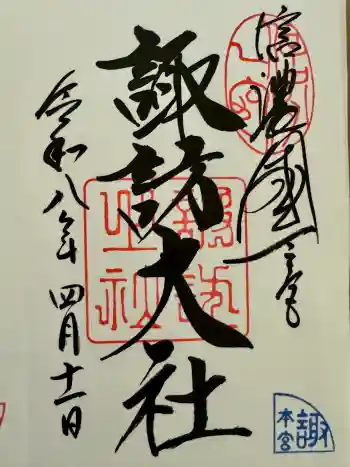 信濃國一之宮
諏訪大社
令和八年四月十一日
諏訪
大社
諏
本宮